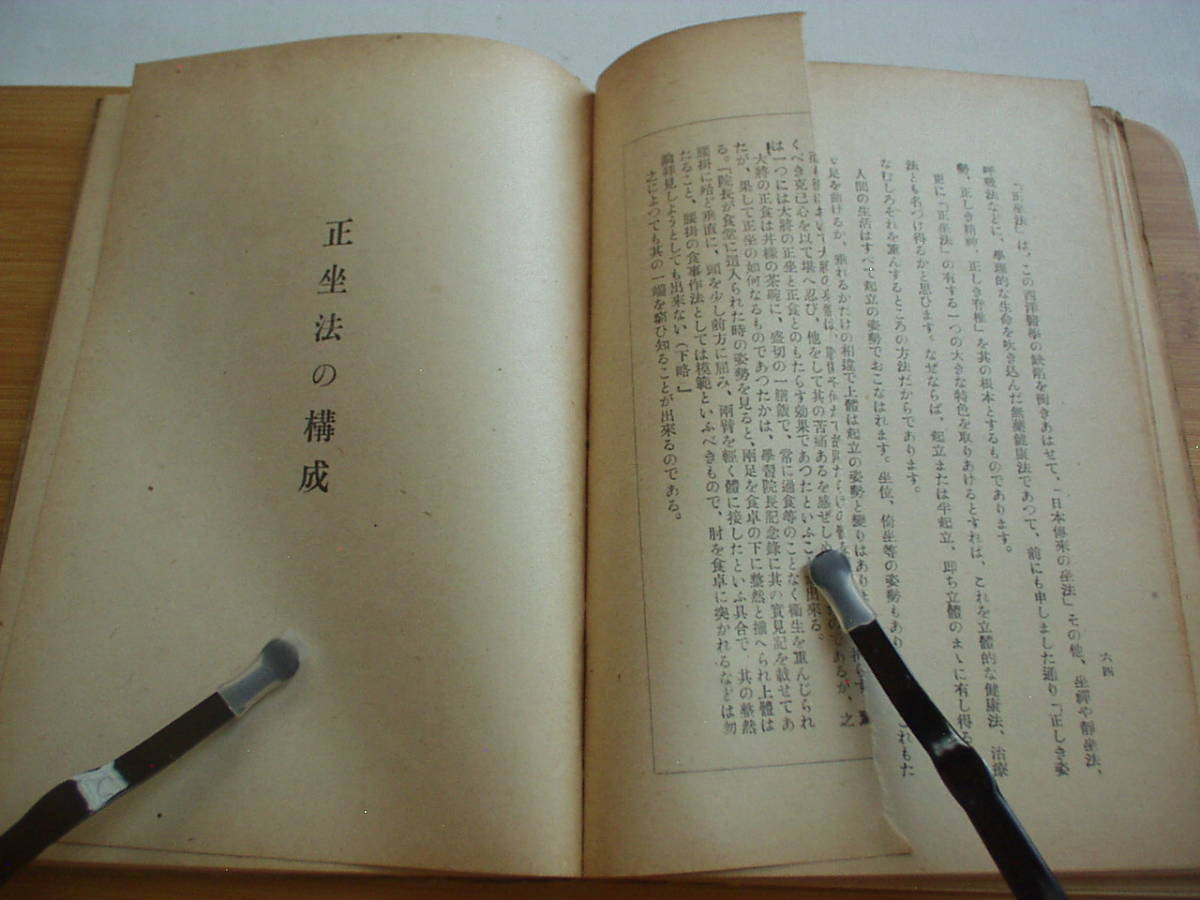 六四
『正坐法』は、この西洋醫學の缺陷を衝きあはせて、「日本傳來の坐法」その他、坐禪や靜坐法、
呼吸法などに、學理的な生命を吹き込んだ無藥健康法であつて、前にも申しました通り『正しき姿
勢、正しき精神、正しき脊椎』を其の根本とするものであります。
更に『正坐法』の有する一つの大きな特色を取りあげるとすれば、これを立體的な健康法、治療
法とも名づけ得るかと思ひます。なぜならば、起立または半起立、即ち立體のまゝに有し得る
なむしろそれを重んずるところの方法だからであります。
人間の生活はすべて起立の姿勢でおこなはれます。坐位、倚坐等の姿勢もあり これもた
足を曲げるか、垂れるかだけの相違で上體は起立の姿勢と變りはありま
のであるが、之
くべき克己心を以て堪へ忍び、他をして其の苦痛あるを感ぜしめ
は一つには大將の正坐と正食とのもたらす効果であつたといふこ 出來る。
大將の正食は丼樣の茶碗に、盛切の一膳飯で、常に過食等のことなく衞生を重んじられ
たが、果して正坐の如何なるものであつたかは、學習院長記念錄に其の實見記を載せてあ
る。『院長が食堂に這入られた時の姿勢を見ると、兩足を食卓の下に整然と揃へられ上體は
腰掛に殆ど垂直に、頭を少し前方に屈み、兩臂を輕く體に接したといふ具合で、其の整然
たること、腰掛の食事作法としては模範といふべきもので、肘を食卓に突かれるなどは勿
論拜見しようとしても出來ない(下略)』
之によつても其の一端を窺ひ知ることが出來るのである。
正坐法の構成